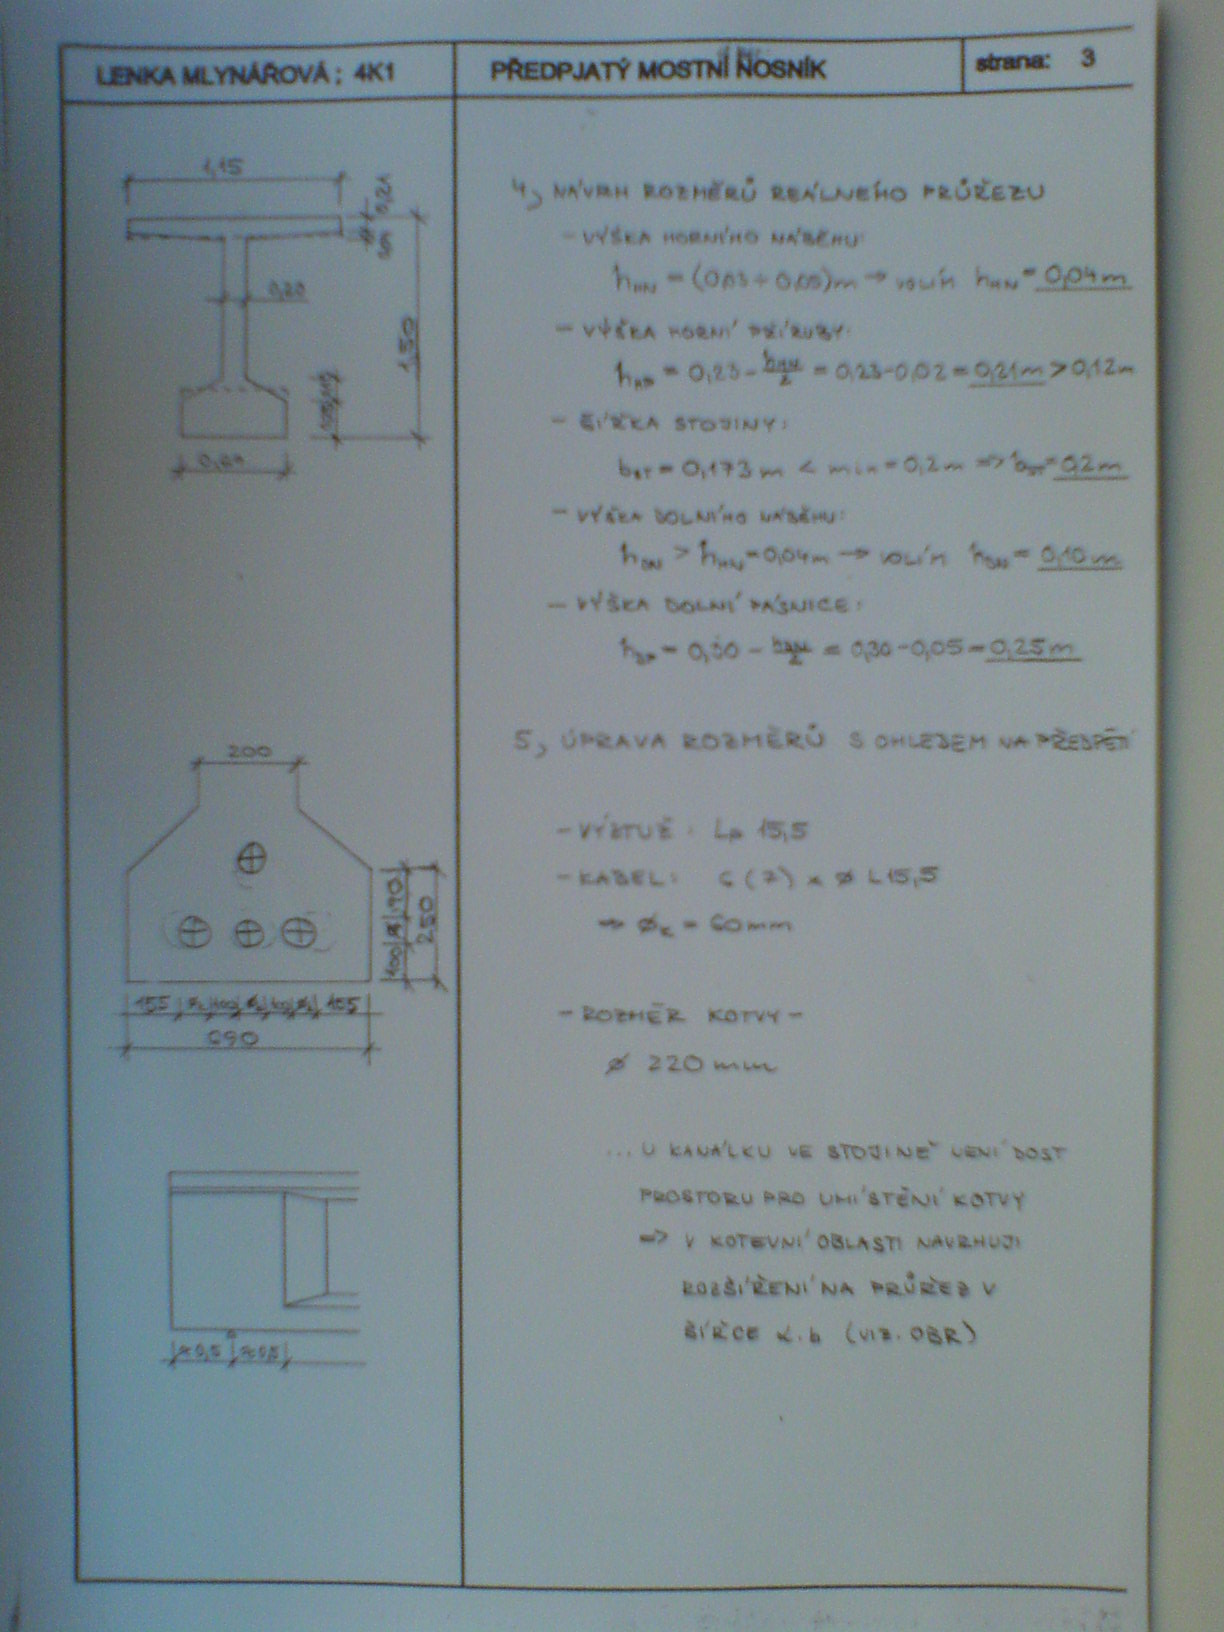 LENKA MLYNÁŘOVÁ ; 4K1
PŘEDPJATÝ MOSTNÍ NOSNÍK
strana: 3
1,15
0,21
0,20
1,50
4, NÁVRH ROZMĚRŮ REÁLNÉHO PRŮŘEZU
- VÝŠKA HORNÍHO NÁBĚHU:
hHN = (0,03 ÷ 0,05)m → VOLÍM hHN = 0,04 m
- VÝŠKA HORNÍ PŘÍRUBY:
= 0,23 - hHN/2 = 0,23 - 0,02 = 0,21 m > 0,12 m
- ŠÍŘKA STOJINY:
bST = 0,173 m < min = 0,2 m => bST = 0,2 m
- VÝŠKA DOLNÍHO NÁBĚHU:
hDN > hHN = 0,04 m → VOLÍM hDN = 0,10 m
- VÝŠKA DOLNÍ PÁSNICE:
= 0,30 - hDN/2 = 0,30 - 0,05 = 0,25 m
200
190
250
100
155
155
690
5, ÚPRAVA ROZMĚRŮ S OHLEDEM NA PŘEDPĚTÍ
- VÝZTUŽ : Lp 15,5
- KABEL: 6 (7) x ø L15,5
=> øK = 60 mm
- ROZMĚR KOTVY -
ø 220 mm
... U KANÁLKU VE STOJINĚ NENÍ DOST
PROSTORU PRO UMÍSTĚNÍ KOTVY
=> V KOTEVNÍ OBLASTI NAVRHUJI
ROZŠÍŘENÍ NA PRŮŘEZ V
ŠÍŘCE α.b (VIZ. OBR)
≈0,5 ≈0,5